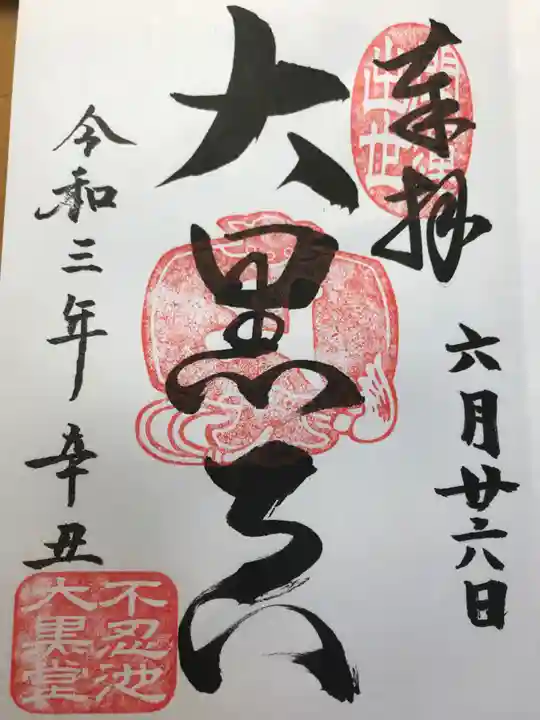 奉拝
六月廿六日
大黒天
令和三年辛丑
不忍池
大黒堂